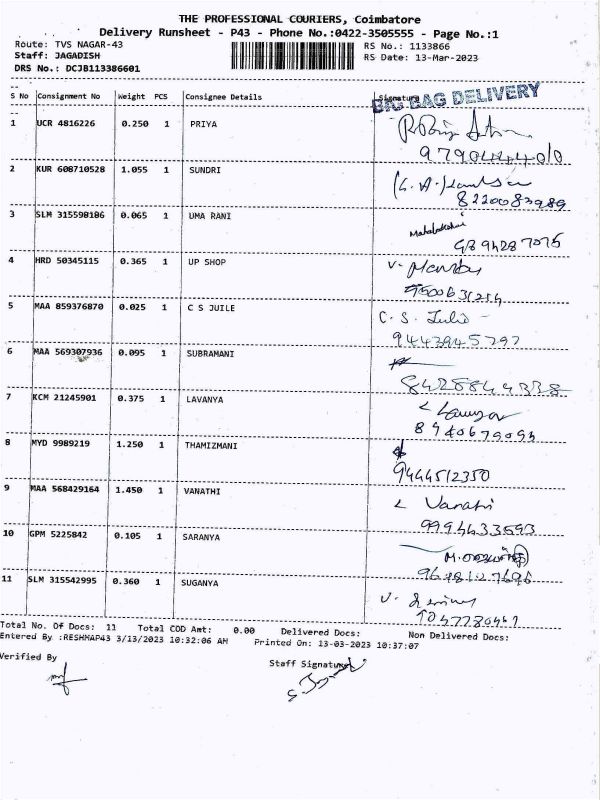 THE PROFESSIONAL COURIERS, Coimbatore
Delivery Runsheet - P43 - Phone No.:0422-3505555 - Page No.:1
Route: TVS NAGAR-43 RS No.: 1133866
Staff: JAGADISH RS Date: 13-Mar-2023
DRS No.: DCJB113386601
S No Consignment No Weight PCS Consignee Details Signature
BIG BAG DELIVERY
1 UCR 4816226 0.250 1 PRIYA
2 KUR 608710528 1.055 1 SUNDRI
8220083989
3 SLM 315598186 0.065 1 UMA RANI
4 HRD 50345115 0.365 1 UP SHOP
5 MAA 859376870 0.025 1 C S JUILE C. S. Julie
6 MAA 569307936 0.095 1 SUBRAMANI
8428844338
7 KCM 21245901 0.375 1 LAVANYA
8 MYD 9989219 1.250 1 THAMIZMANI
9444512350
9 MAA 568429164 1.450 1 VANATHI Vanathi
9994633593
10 GPM 5225842 0.105 1 SARANYA
11 SLM 315542995 0.360 1 SUGANYA
Total No. Of Docs: 11 Total COD Amt: 0.00 Delivered Docs: Non Delivered Docs:
Entered By :RESHMAP43 3/13/2023 10:32:06 AM Printed On: 13-03-2023 10:37:07
Verified By Staff Signature